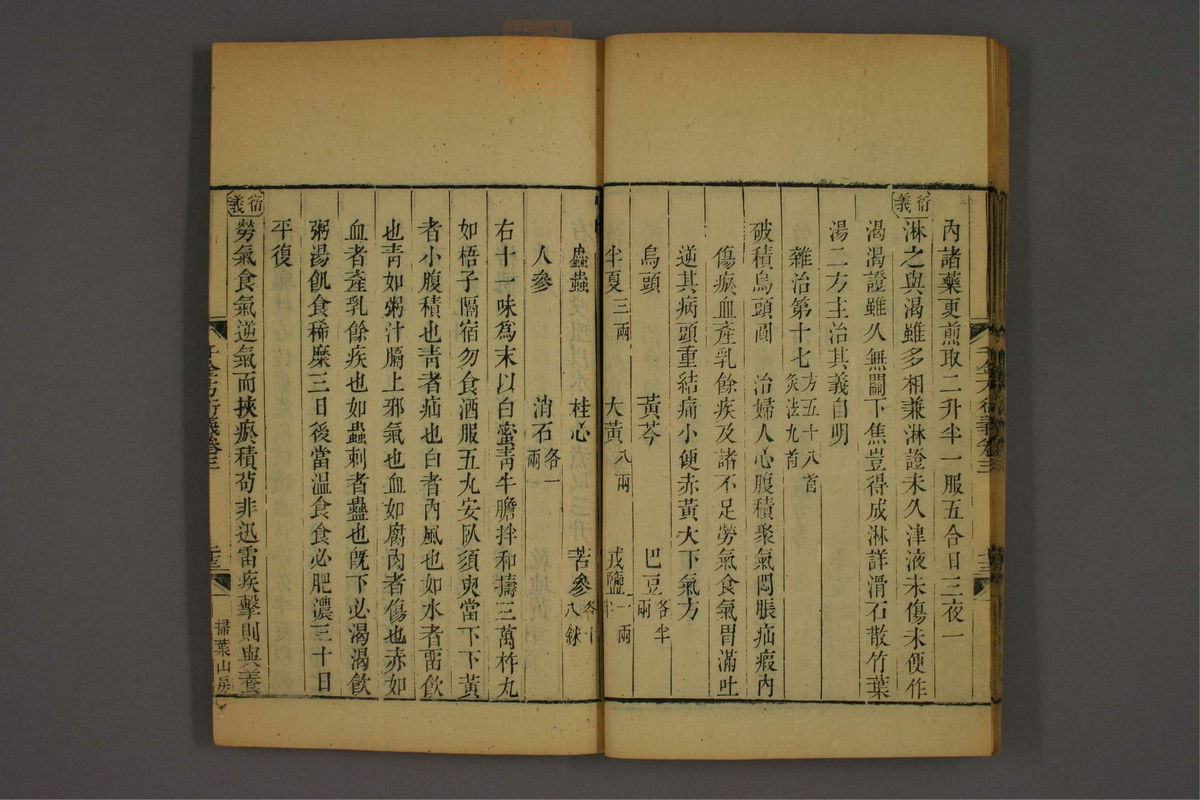 內諸藥更煎取二升半一服五合日三夜一
衍義
淋之與渴雖多相兼淋證未久津液未傷未便作
渴渴證雖久無關下焦豈得成淋詳滑石散竹葉
湯二方主治其義自明
雜治第十七 方五十八首 灸法九首
破積烏頭圓 治婦人心腹積聚氣悶脹疝瘕內
傷瘀血產乳餘疾及諸不足勞氣食氣胃滿吐
逆其病頭重結痛小便赤黃大下氣方
烏頭 黃芩 巴豆各半兩
半夏三兩 大黃八兩 戎鹽一兩半
䗪蟲 桂心 苦參各十八銖
人參 消石各一兩
右十一味為末以白蜜青牛膽拌和擣三萬杵丸
如梧子隔宿勿食酒服五丸安臥須臾當下下黃
者小腹積也青者疝也白者內風也如水者畱飲
也青如粥汁膈上邪氣也血如腐肉者傷也赤如
血者產乳餘疾也如蟲刺者蠱也既下必渴渴飲
粥湯飢食稀糜三日後當溫食食必肥濃三十日
平復
衍義
勞氣食氣逆氣而挾瘀積苟非迅雷疾擊則與養
千金方衍義卷三
掃葉山房